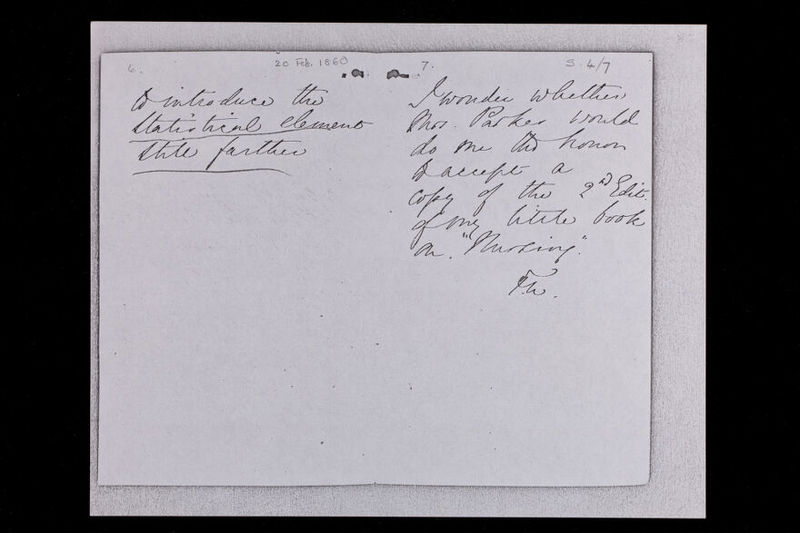 6.
20 Feb. 1860
to introduce the
statistical element
still farther
7.
S. 4/7
I wonder whether
Mrs. Parkes would
do me the honor
to accept a
copy of the 2nd Edit.
of my little book
on "Nursing".
F.N.